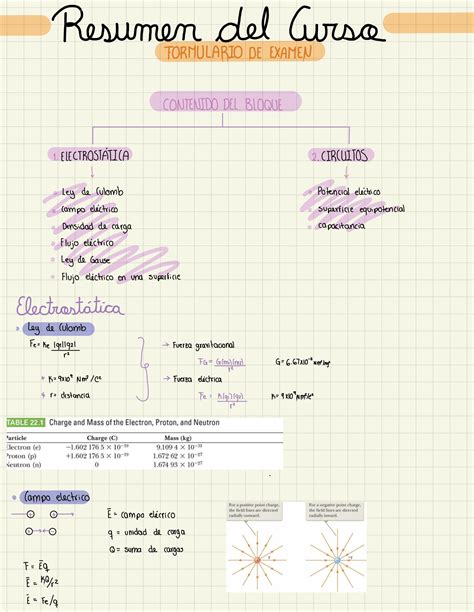 Resumen del Curso
FORMULARIO DE EXAMEN
CONTENIDO DEL BLOQUE
1. ELECTROSTÁTICA
2. CIRCUITOS
Ley de Culomb
Campo eléctrico
Densidad de carga
Flujo eléctrico
Ley de Gause
Flujo eléctrico en una superficie
Potencial eléctrico
superficie equipotencial
capacitancia
Electrostática
Ley de Culomb
Fe = Ke |q1||q2| / r²
K = 9x10⁹ Nm²/C²
r = distancia
→ Fuerza gravitacional
FG = G(m1)(m2) / r²
→ Fuerza eléctrica
Fe = K(q1)(q2) / r²
TABLE 22.1 Charge and Mass of the Electron, Proton, and Neutron
Particle Charge (C) Mass (kg)
Electron (e) −1.602 176 5 × 10⁻¹⁹ 9.109 4 × 10⁻³¹
Proton (p) +1.602 176 5 × 10⁻¹⁹ 1.672 62 × 10⁻²⁷
Neutron (n) 0 1.674 93 × 10⁻²⁷
Campo eléctrico
E = campo eléctrico
q = unidad de carga
Q = suma de cargas
F = Eq
E = KQ/r²
E = Fe/q
For a positive point charge, the field lines are directed radially outward.
For a negative point charge, the field lines are directed radially inward.